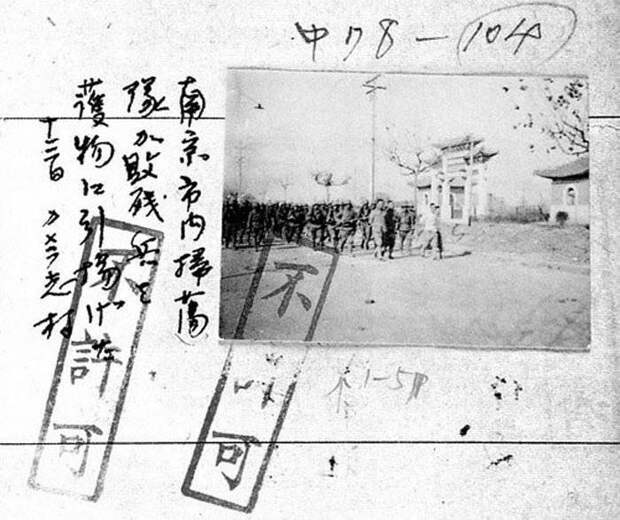 中 78 — 104
南京市内掃蕩
隊が敗残兵を
護物に引揚げ
十三日
村
不許可
不許可
1-5